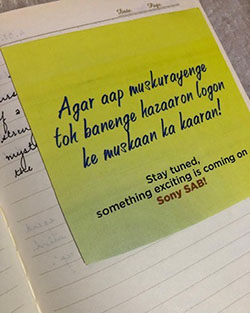 Date Page
Agar aap muskurayenge
toh banenge hazaaron logon
ke muskaan ka kaaran!
Stay tuned,
something exciting is coming on
Sony SAB!
the